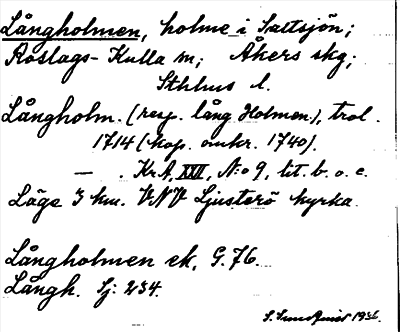 Långholmen, holme i Saltsjön;
Roslags-Kulla sn; Åkers skg;
Sthlms l.
Långholm. (resp. lång Holmen), trol.
1714 (kop. omkr. 1740).
— . KrA, XXVI, N:o 9, lit. b. o. c.
Läge 3 km. VNV Ljusterö kyrka.
Långholmen ek, G.76.
Långh. Sj: 234.
1936.